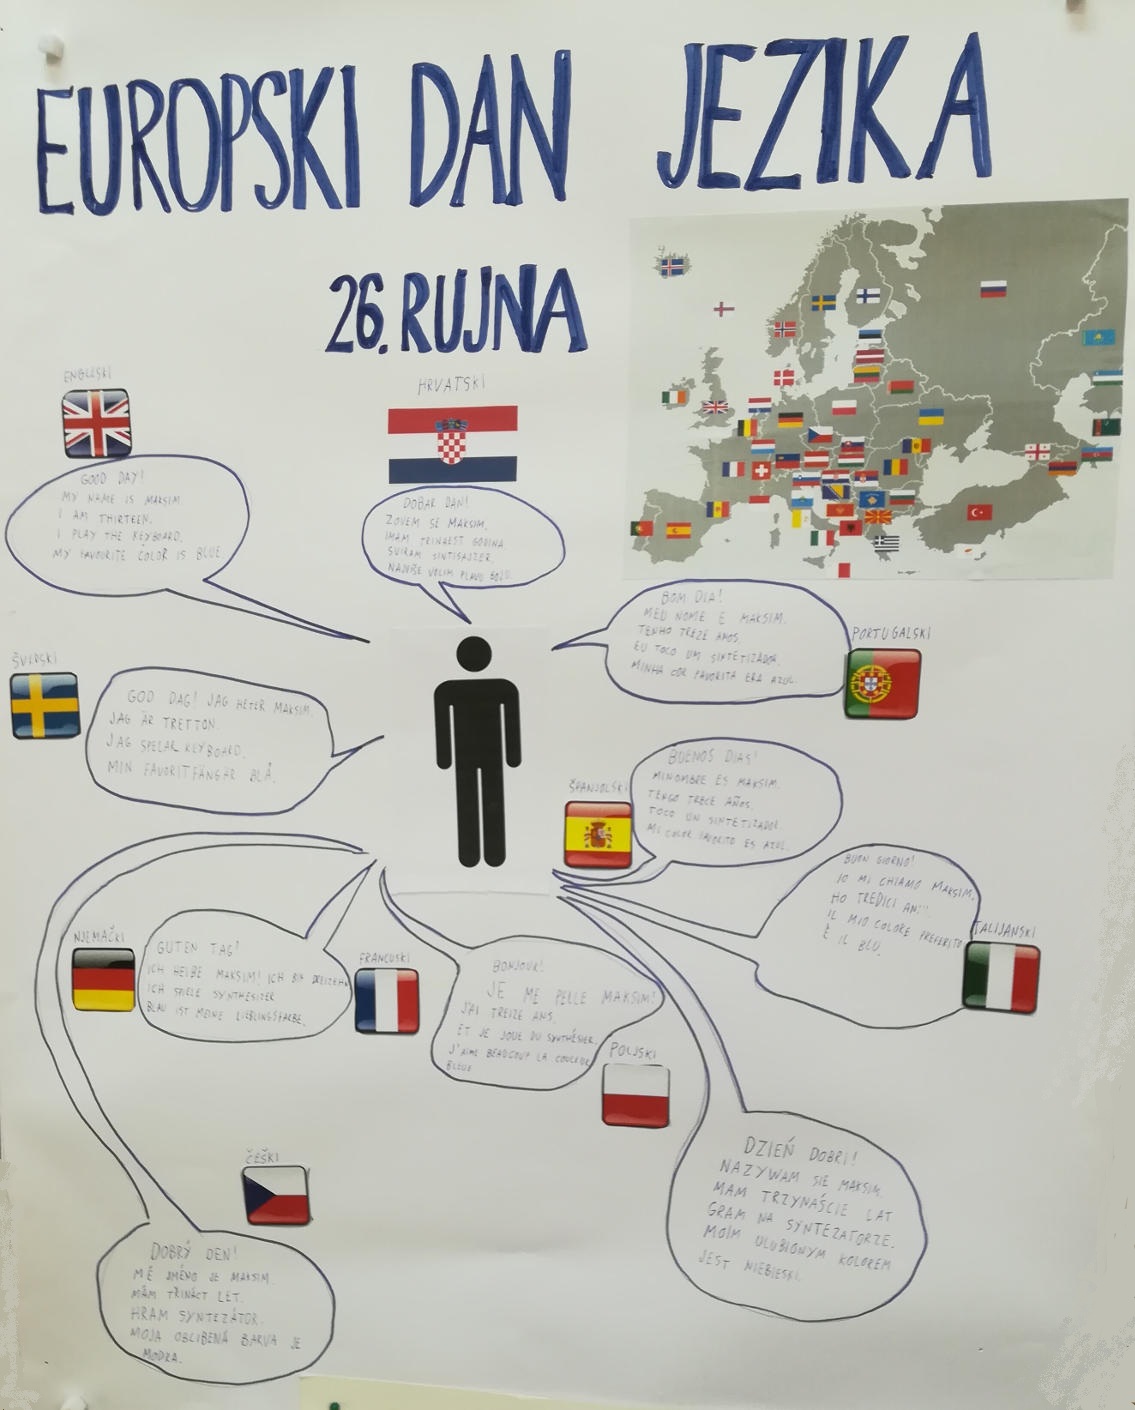 EUROPSKI DAN JEZIKA
26. RUJNA
ENGLESKI
GOOD DAY!
MY NAME IS MAKSIM
I AM THIRTEEN.
I PLAY THE KEYBOARD.
MY FAVORITE COLOR IS BLUE
HRVATSKI
DOBAR DAN!
ZOVEM SE MAKSIM.
IMAM TRINAEST GODINA.
SVIRAM SINTISAJZER.
NAJVIŠE VOLIM PLAVU BOJU.
BOM DIA!
MEU NOME E MAKSIM.
TENHO TREZE ANOS
EU TOCO UM SINTETIZADOR.
MINHA COR FAVORITA ERA AZUL.
PORTUGALSKI
ŠVEDSKI
GOD DAG! JAG HETER MAKSIM.
JAG ÄR TRETTON.
JAG SPELAR KEYBOARD.
MIN FAVORITFÄNGÄR BLÅ.
ŠPANJOLSKI
BUENOS DIAS!
MI NOMBRE ES MAKSIM.
TENGO TRECE AÑOS.
TOCO UN SINTETIZADOR.
MI COLOR FAVORITO ES AZUL.
BUON GIORNO!
IO MI CHIAMO MAKSIM.
HO TREDICI
IL MIO COLORE PREFERITO
È IL BLU.
TALIJANSKI
NJEMAČKI
GUTEN TAG!
ICH HEIßE MAKSIM! ICH BIN DREIZEHN
ICH SPIELE SYNTHESIZER
BLAU IST MEINE LIEBLINGSFARBE.
FRANCUSKI
BONJOUR!
JE ME PELLE MAKSIM!
J'AI TREIZE ANS.
ET JE JOUE DU SYNTHÉSIER.
J'AIME BEAUCOUP LA COULEUR
BLEUE
POLJSKI
DZIEŃ DOBRI!
NAZYWAM SIE MAKSIM.
MAM TRZYNAŚCIE LAT
GRAM NA SYNTEZATORZE.
MOIM ULUBIONYM KOLOREM
JEST NIEBIESKI.
ČEŠKI
DOBRÝ DEN!
MÉ JMÉNO JE MAKSIM.
MÁM TŘINÁCT LET.
HRAM SYNTEZÁTOR.
MOJA OBLIBENÁ BARVA JE
MODRA.